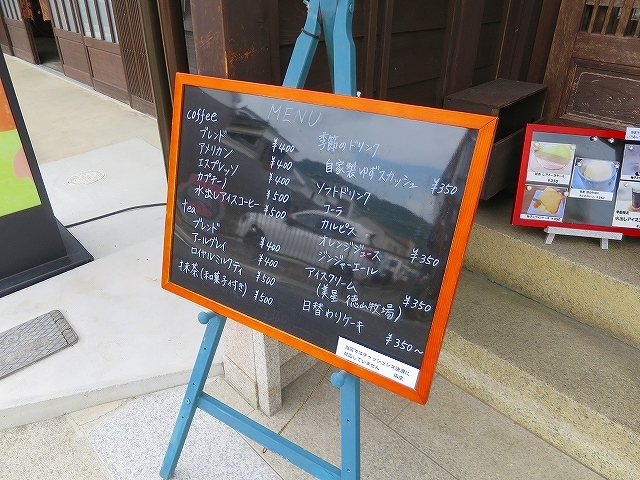 MENU
coffee
ブレンド ¥400
アメリカン ¥400
エスプレッソ ¥400
カプチーノ ¥500
水出しアイスコーヒー ¥500
tea
ブレンド ¥400
アールグレイ ¥400
ロイヤルミルクティ ¥500
抹茶(和菓子付き) ¥500
季節のドリンク
自家製ゆずスカッシュ ¥350
ソフトドリンク
コーラ
カルピス
オレンジジュース
ジンジャーエール ¥350
アイスクリーム
(美星 徳山牧場) ¥350
日替わりケーキ
¥350～
当店ではキャッシュレス決済に
対応していません 店主